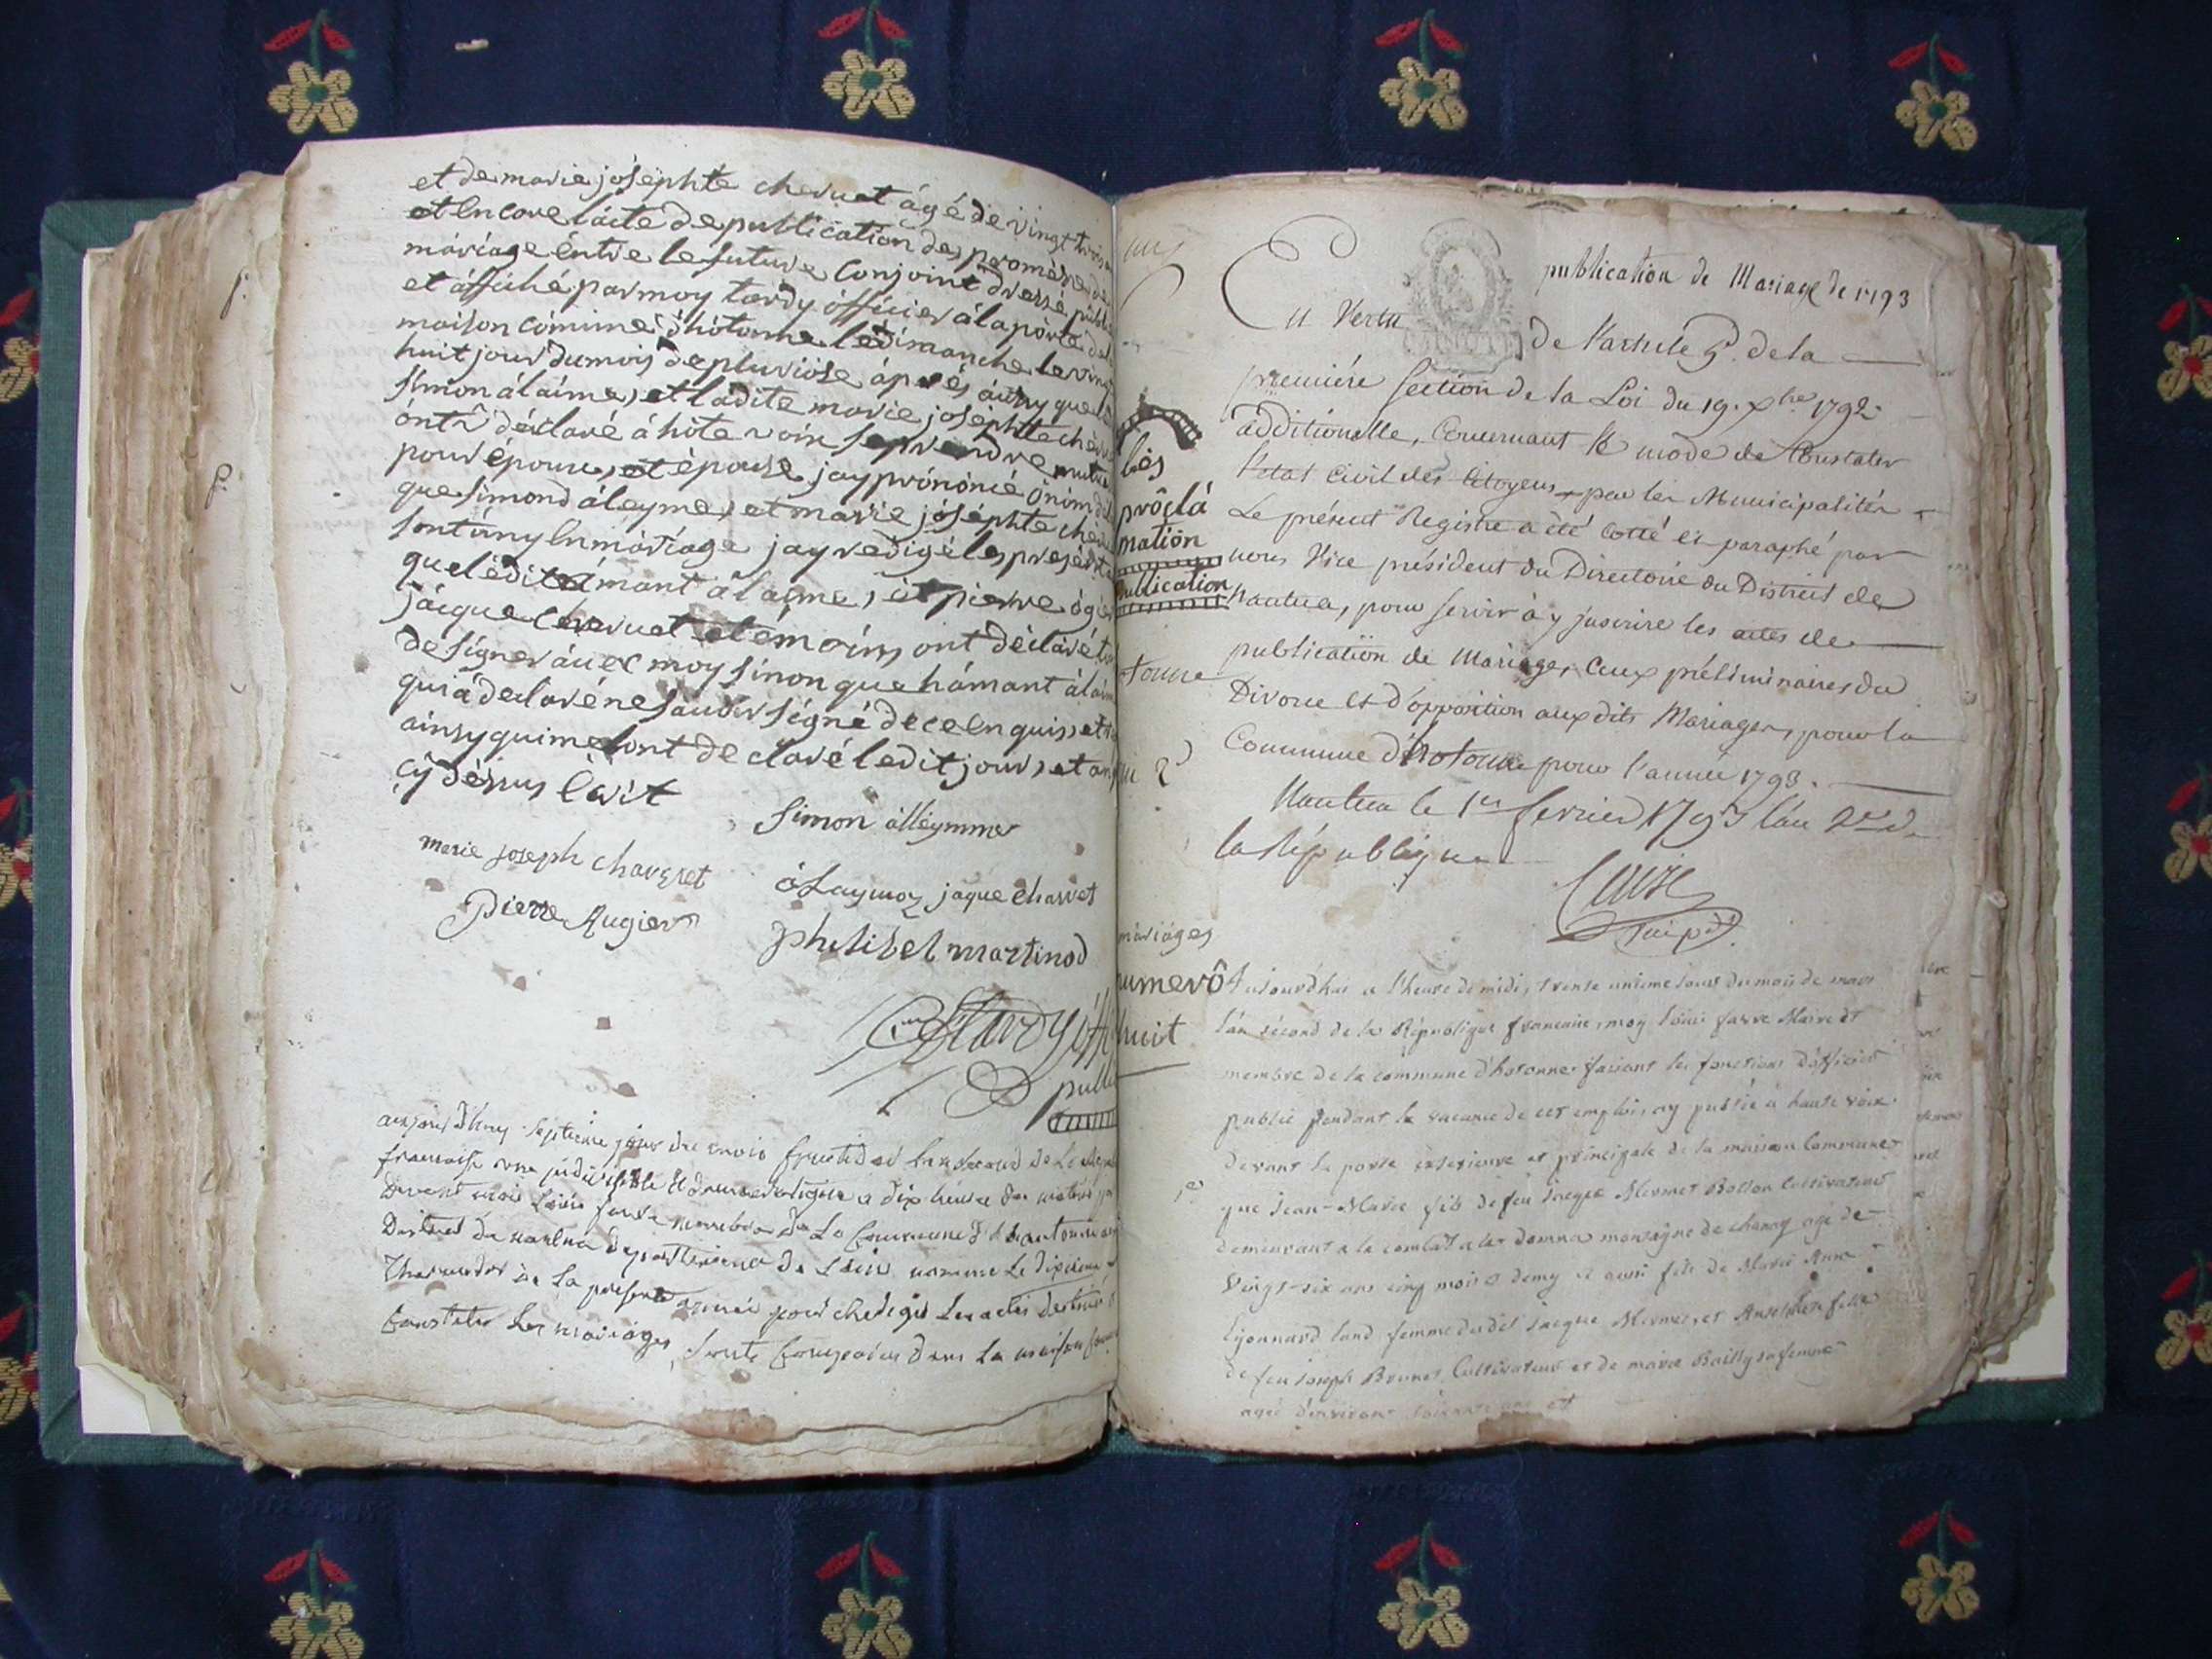 et de marie joséphte chervet âgé de vingt trois
et encore lácte de publication des promésse de
máriage éntre le future Conjoint dressé publi
et áffiché par moy tardy officier á la porte de
maison cómune d'hótonne le dimanche le vingt
huit jour du mois de pluviose áprés áinsy que
simon alaime, et ladite marie joséphte cher
ónt déclaré á hôte voix se prendre mutue
pour époux, et épouse jay prónóncé ó nom de
que simond áleyme, et marie joséphte cher
sont úny en máriage jay redigé les présent
que lédit amant álaime, et pierre ógie
jácque chervuet témoins, ont déclaré
de signer ávec moy sinon que hámant álaim
qui á declaré ne savoir signé de ce enquis, et
ainsy qui me sont declaré ledit jour, et an
cy déssus Écrit
simon álléymme
marie joseph chaveret
ólaymoz jaque charvet
Pierre Augier
philibel martinod
tardy off
publi
aujourd'huy septieme jour du mois fructidor l'an second de la Repub
francaise une indivisible et democratique a dix heure du matin par
devant moi Louis favre membre de la Commune d'hautonne
District de nantua departement de L'ain nomme le dixieme
Thermidor de la presente année pour rediger les actes destiné
Constater les mariages, sonts Comparus dans la maison Com
les
próclá
mation
publication
tonne
mariages
numerô
huit
publication de Mariage de 1793
En Vertu de l'article 5. de la
premiére section de la Loi du 19. Xbre 1792.
additionelle, Concernant le mode de Constater
l'état Civil des Citoyens par les Municipalités
Le présent Registre a été Cotté et paraphé par
nous Vice président du Directoire du District de
Nantua, pour servir à y inscrire les actes de
publication de Mariage, Ceux préliminaires du
Divorce et d'opposition auxdits Mariages, pour la
Commune d'hotonne pour l'année 1793.
Nantua le 1er fevrier 1793 l'an 2e de
la République
Aujourd'hui a l'heure de midi, trente unieme jour du mois de mars
l'an sécond de la République francaise, moy Louis favre Maire et
membre de la commune d'hotonne faisant les fonctions d'officier
public pendant la vacance de cet emploi, ay publié a haute voix
devant la porte exterieure et principale de la maison Commune
1er
que Jean-Marie fils de feu Jacque Mermet Bollon Cultivateur
demeurant a la combat a la montagne de chanay agé de
Vingt-six ans cinq mois et demy et aussi fils de Marie Anne
Lyonnard land femme dudit Jacque Mermet, et Anselme fille
de feu Joseph Brunet Cultivateur et de marie Bailly sa femme
agée d'environ